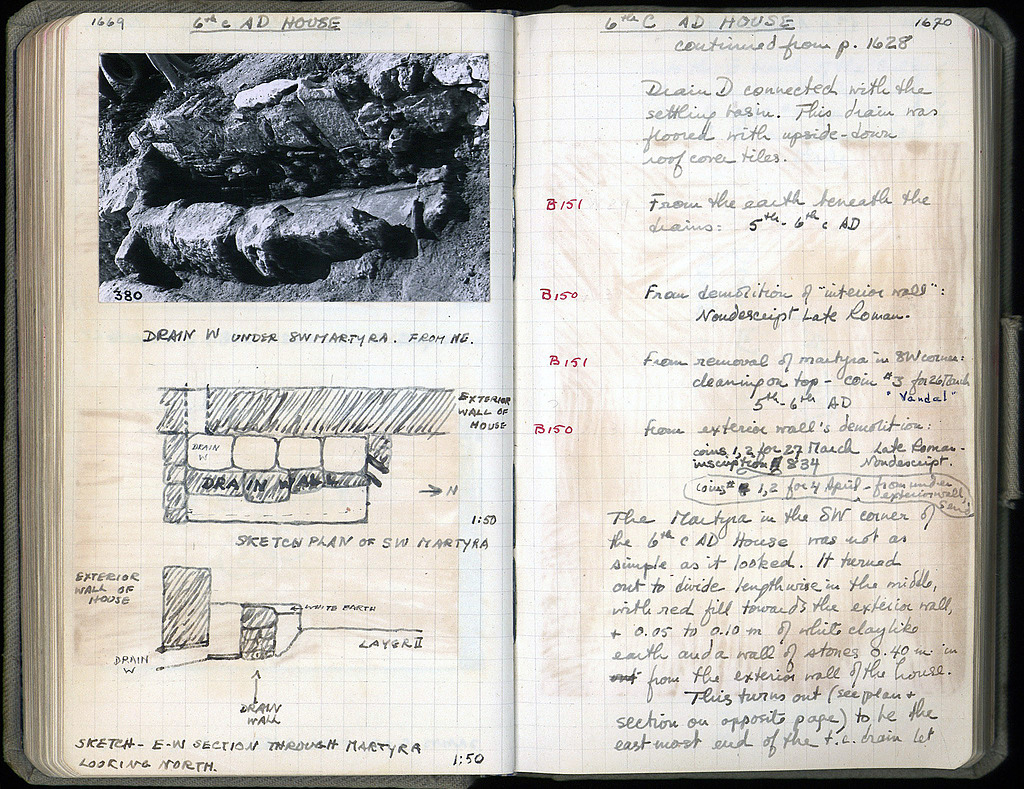 1669
6th c AD HOUSE
380
DRAIN W UNDER SW MARTYRA. FROM NE.
EXTERIOR
WALL OF
HOUSE
DRAIN
W
DRAIN WALL
→ N
1:50
SKETCH PLAN OF SW MARTYRA
EXTERIOR
WALL OF
HOUSE
← WHITE EARTH
LAYER II
DRAIN
W
↑
DRAIN
WALL
SKETCH - E-W SECTION THROUGH MARTYRA
LOOKING NORTH.
1:50
6th C AD HOUSE
1670
continued from p. 1628
Drain D connected with the
settling basin. This drain was
floored with upside-down
roof cover tiles.
B151
From the earth beneath the
drains: 5th - 6th c AD
B150
From demolition of "interior wall":
Nondescript Late Roman.
B151
From removal of martyra in SW corner:
cleaning on top - coin #3 for 26 March
"Vandal"
5th - 6th AD
B150
From exterior wall's demolition:
coins 1, 2 for 27 March Late Roman -
inscription 834 Nondescript.
coins # 1, 2 for 4 April - from under
exterior wall,
The Martyra in the SW corner of
the 6th c AD House was not as
simple as it looked. It turned
out to divide lengthwise in the middle,
with red fill towards the exterior wall,
+ 0.05 to 0.10 m of white claylike
earth and a wall of stones 0.40 m in
from the exterior wall of the house.
This turns out (see plan +
section on opposite page) to be the
east most end of the t.c. drain let